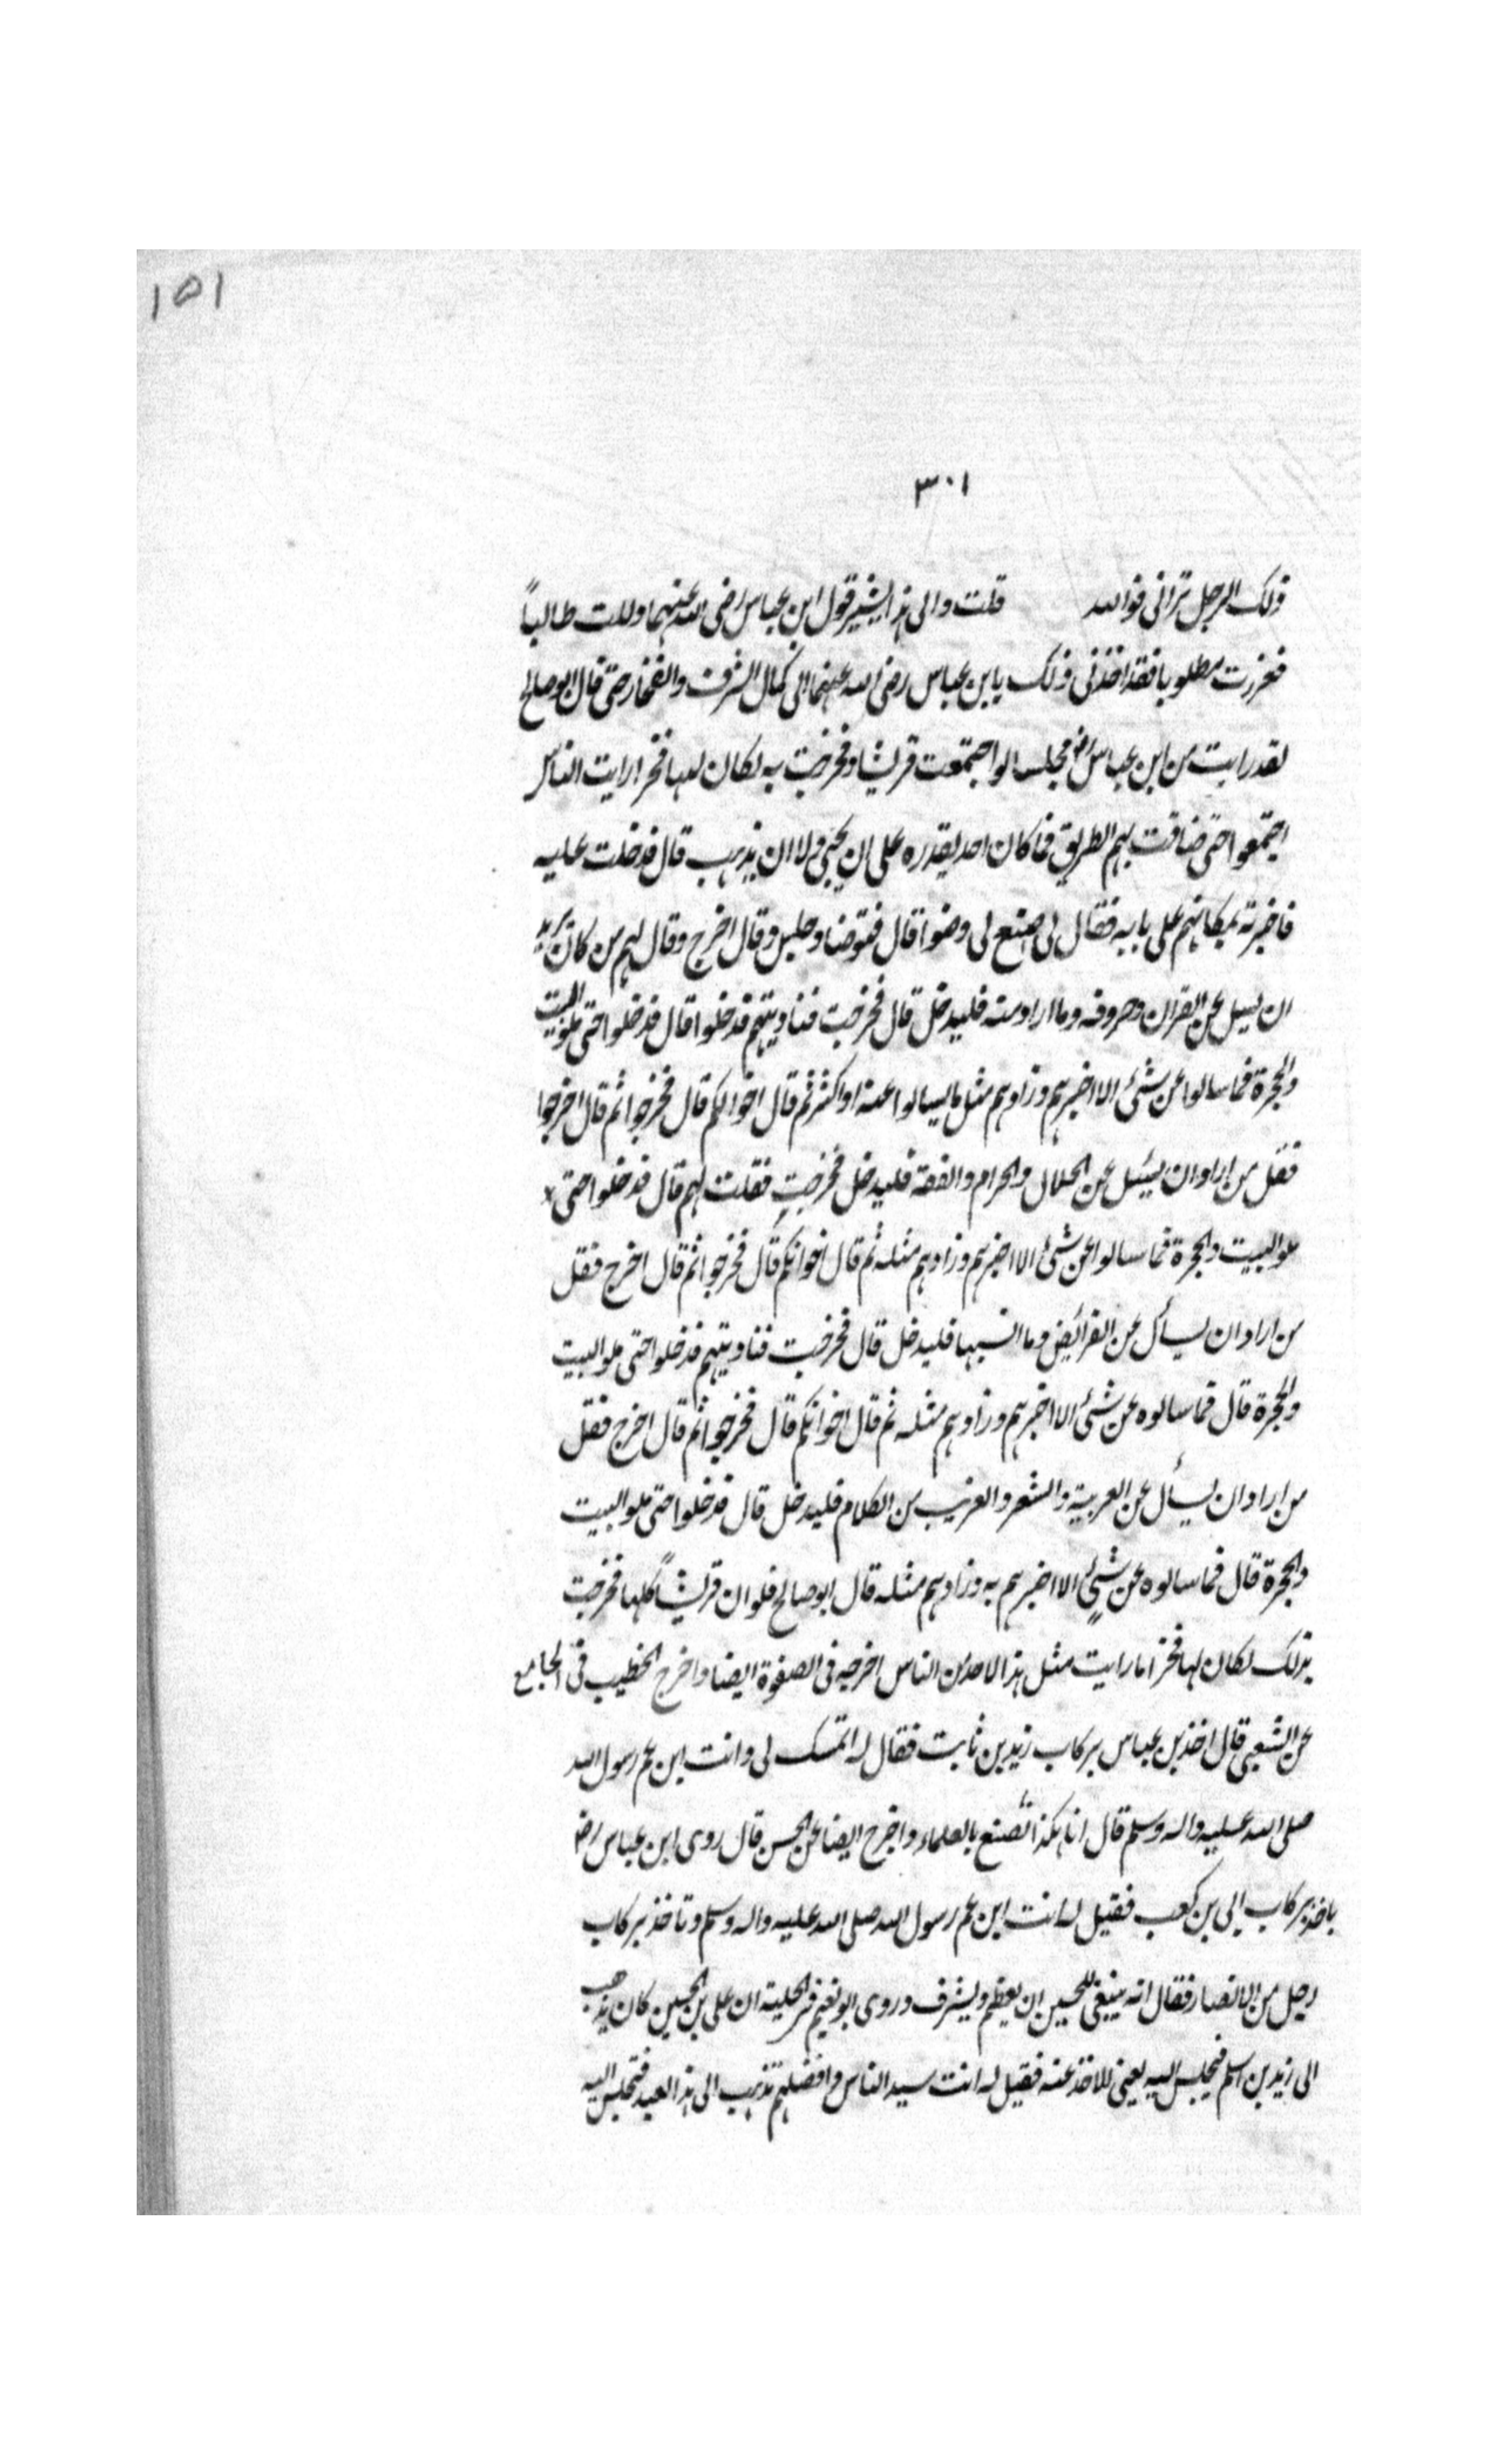 ١٥١
٣٠١
ذلك الرجل ترانى فوالله قلت والى هذا يشير قول ابن عباس رضى الله عنهما وللت طالباً
فعززت مطلوبا فقد اخذنى ذلك يا بن عباس رضى الله عنهما الى كمال الشرف والفخار حتى قال ابو صالح
لقد رايت من ابن عباس رض مجلسا لو اجتمعت قريشا وفخرت به لكان لها فخرا رايت الناس
اجتمعوا حتى ضاقت بهم الطريق فما كان احد يقدره على ان يجئ ولا ان يذهب قال فدخلت عليه
فاخبرته بمكانهم على بابه فقال لى اصنع لى وضوا قال فتوضا وجلس وقال اخرج وقال لهم من كان يريد
ان يسيل عن القران وحروفه وما اراد منه فليدخل قال فخرجت فناديتهم فدخلوا قال فدخلوا حتى ملو البيت
والحجرة فما سالوا عن شئ الا اخبرهم وزادهم مثل ما يسالوا عنه او اكثر ثم قال اخوالكم قال فخرجوا ثم قال اخرجوا
فقل من اراد ان يسئل عن الحلال والحرام والفقه فليدخل فخرجت فقلت لهم قال فدخلوا حتى
ملو البيت والحجرة فما سالوا عن شئ الا اخبرهم وزادهم مثله ثم قال اخوانكم قال فخرجوا ثم قال اخرج فقل
من اراد ان يسأل عن الفرائض وما اشبهها فليدخل قال فخرجت فناديتهم فدخلوا حتى ملو البيت
والحجرة قال فما سالوه عن شئ الا اخبرهم وزادهم مثله ثم قال اخوانكم قال فخرجوا ثم قال اخرج فقل
من اراد ان يسأل عن العربية والشعر والغريب من الكلام فليدخل قال فدخلوا حتى ملو البيت
والحجرة قال فما سالوه عن شئٍ الا اخبرهم به وزادهم مثله قال ابو صالح فلو ان قريشاً كلها فخرت
بذلك لكان لها فخرا ما رايت مثل هذا لاحد من الناس اخرجه فى الصفوة ايضا واخرج الخطيب فى الجامع
عن الشعبى قال اخذ بن عباس بركاب زيد بن ثابت فقال له اتمسك لى وانت ابن عم رسول الله
صلى الله عليه واله وسلم قال انا هكذا نصنع بالعلماء واخرج ايضا عن الحسن قال روى ابن عباس رض
ياخذ بركاب ابى بن كعب فقيل له انت ابن عم رسول الله صلى الله عليه واله وسلم وتاخذ بركاب
رجل من الانصار فقال انه ينبغى للحسين ان يعظم ويشرف وروى ابو نعيم فى الحلية ان على بن الحسين كان يذهب
الى زيد بن اسلم فيجلس اليه يعنى للاخذ عنه فقيل له انت سيد الناس وافضلهم تذهب الى هذا العبد فتجلس اليه